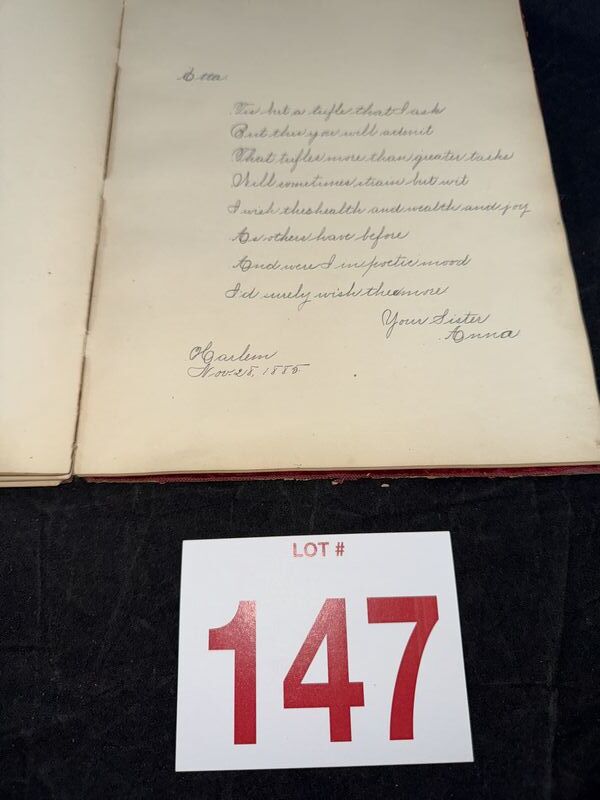 Etta
Tis but a trifle that I ask
But this you will admit
That trifles more than greater tasks
Will sometimes strain but wit
I wish thee health and wealth and joy
As others have before
And were I in poetic mood
I'd surely wish thee more
Your Sister
Anna
Harlem
Nov. 28, 1885
LOT #
147